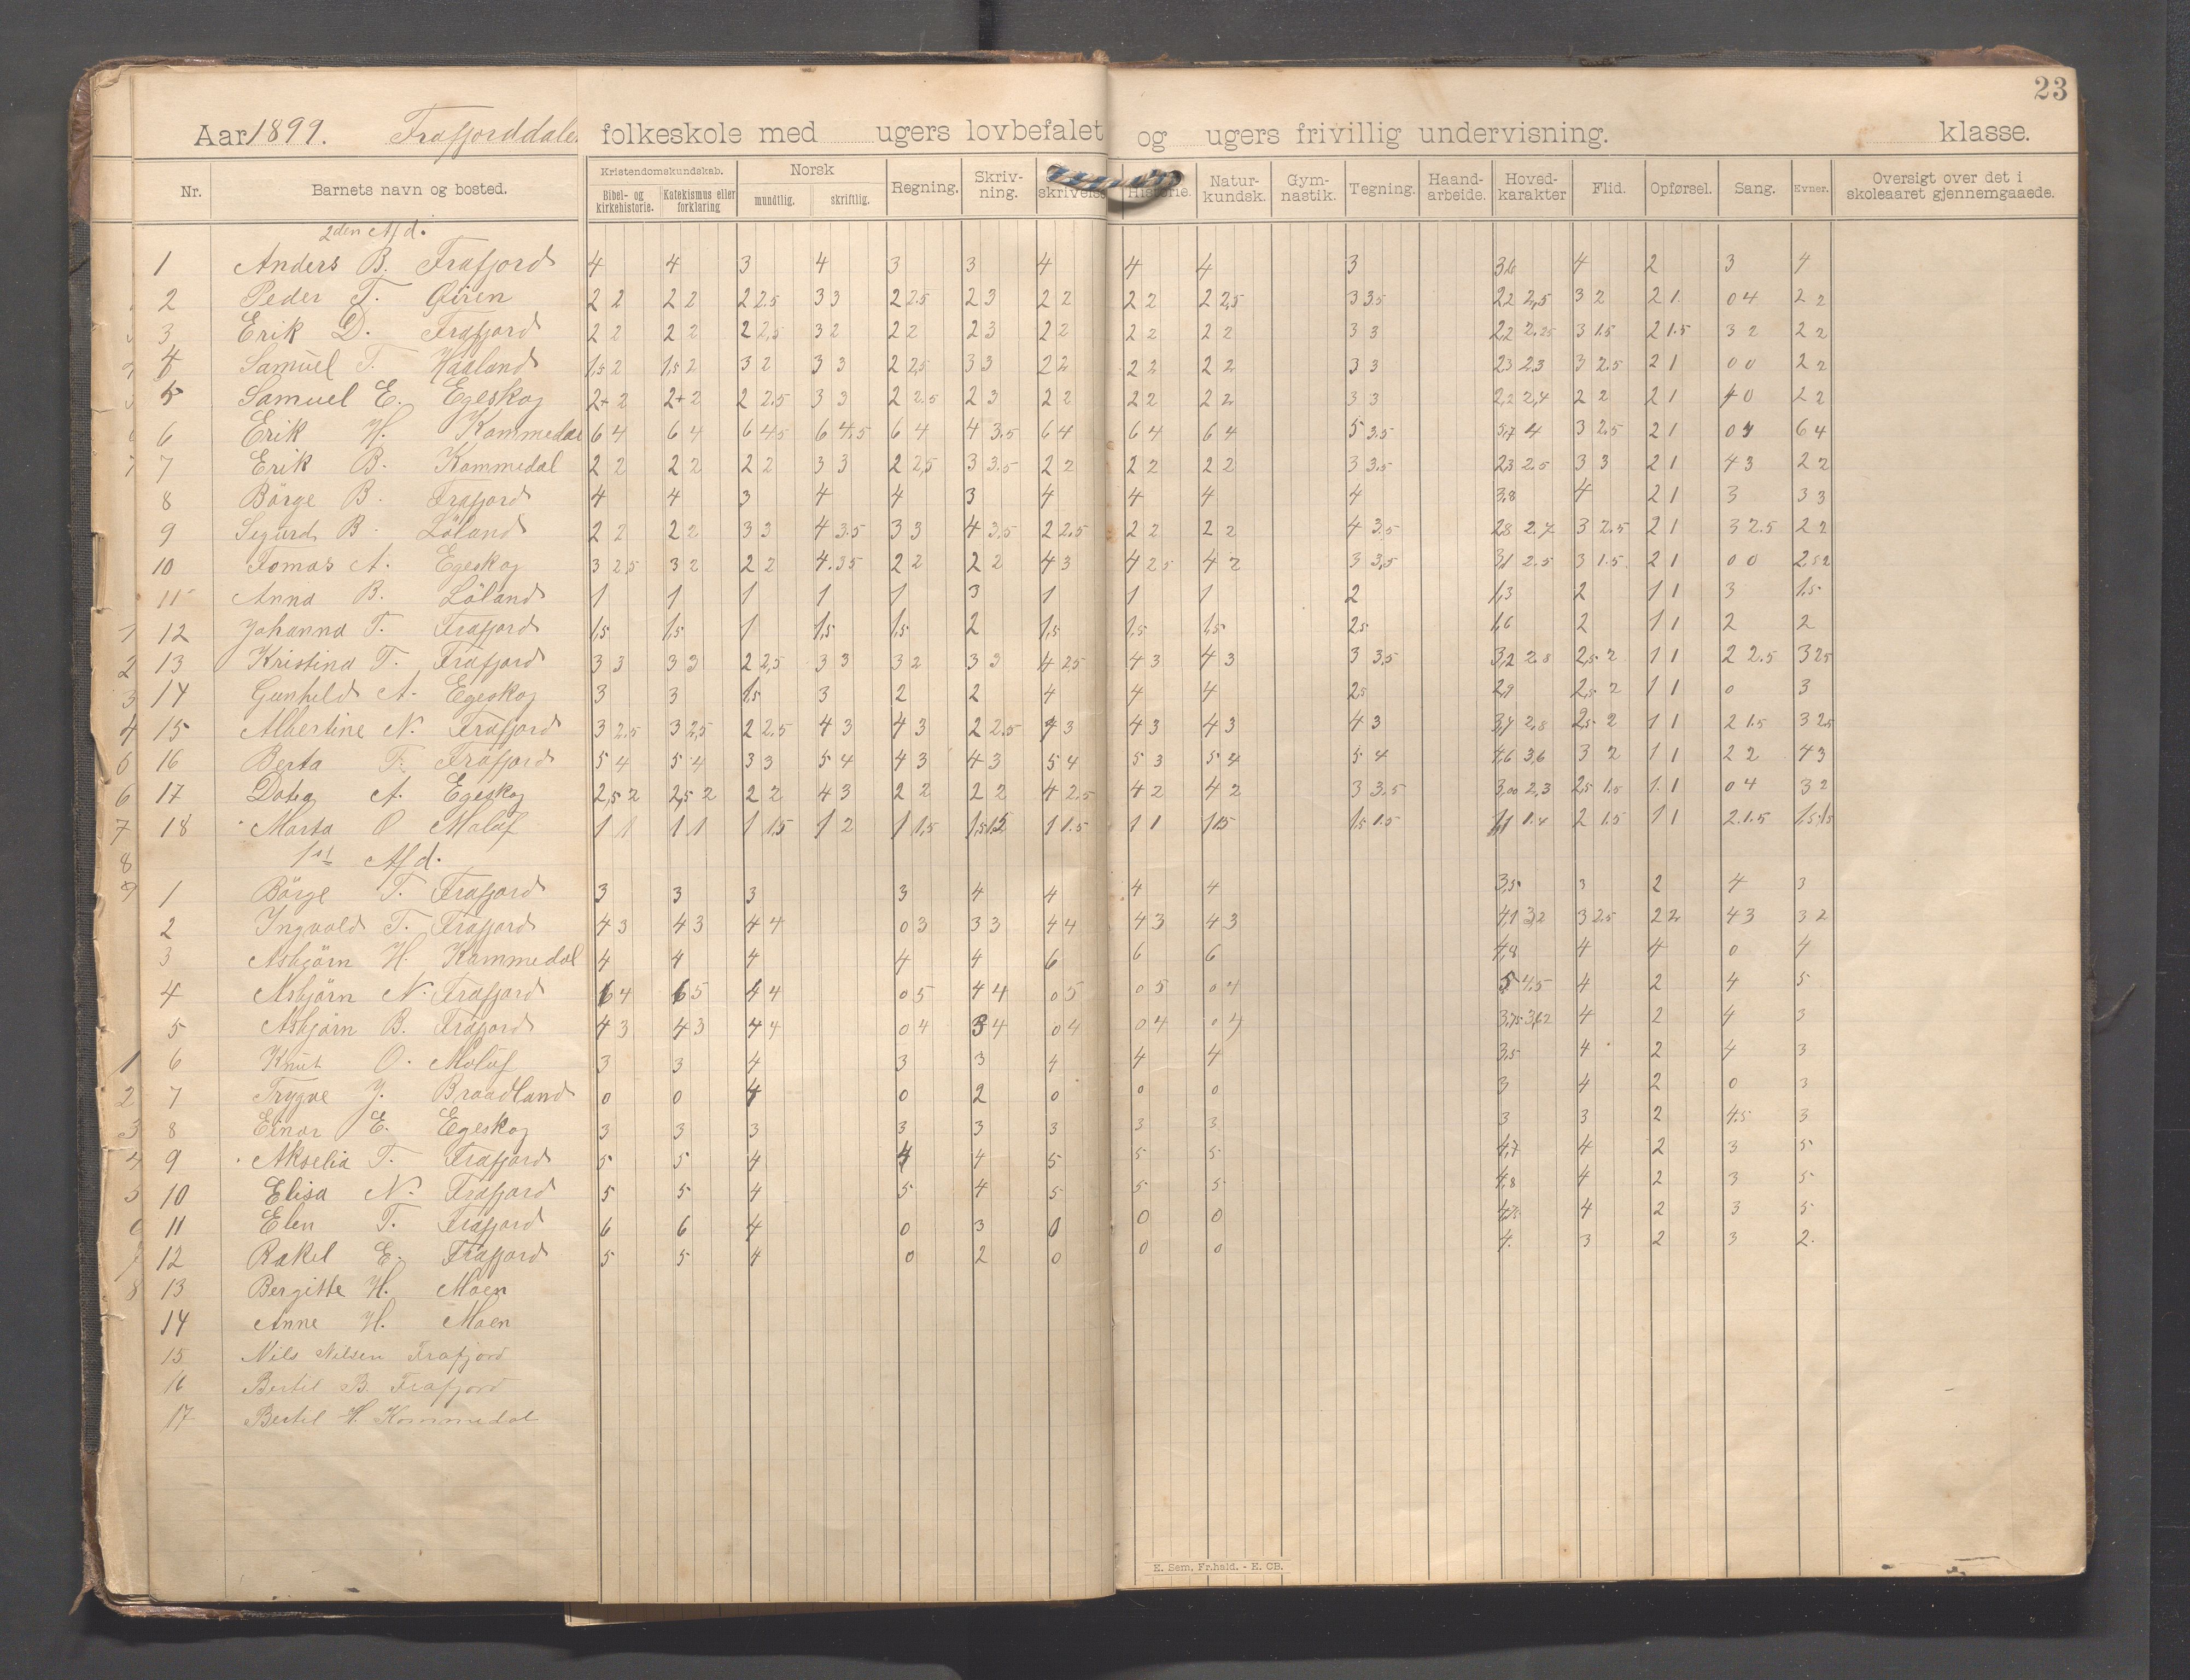 23
Aar 1899. Frafjorddalen folkeskole med ugers lovbefalet og ugers frivillig undervisning. klasse.
Nr. Barnets navn og bosted. Kristendomskundskab. Bibel- og kirkehistorie. Katekismus eller forklaring Norsk mundtlig. skriftlig. Regning. Skriv-ning. Historie. Natur-kundsk. Gym-nastik. Tegning. Haand-arbeide. Hoved-karakter Flid. Opførsel. Sang. Evner. Oversigt over det i skoleaaret gjennemgaaede.
2den Afd.
1 Anders B. Frafjord 4 4 3 4 3 3 4 4 4 3 3,6 4 2 3 4
2 Peder T. 2 2 2 2 2 2.5 3 3 2 2.5 2 3 2 2 2 2 2 2,5 3 3.5 2,2 2,5 3 2 2 1. 0 4 2 2
3 Erik D. Frafjord 2 2 2 2 2 2,5 3 2 2 2 2 3 2 2 2 2 2 2 3 3 2,2 2.25 3 1.5 2 1.5 3 2 2 2
4 Samuel T. Haaland 1,5 2 1,5 2 3 2 3 3 2 2,5 3 3 2 2 2 2 2 2 3 3 2,3 2.3 3 2.5 2 1 0 0 2 2
5 Samuel E. Egeskog 2+ 2 2+ 2 2 2.5 3 3 2 2.5 2 3 2 2 2 2 2 2 3 3 2,2 2,4 2 2 2 1 4 0 2 2
6 Erik H. Kommedal 6 4 6 4 6 4.5 6 4.5 6 4 4 3.5 6 4 6 4 6 4 5 3.5 5,7 4 3 2.5 2 1 0 6 4
7 Erik B. Kommedal 2 2 2 2 2 2 3 3 2 2,5 3 3.5 2 2 2 2 2 2 3 3.5 2,3 2.5 3 3 2 1 4 3 2 2
8 Börge B. Frafjord 4 4 3 4 4 3 4 4 4 4 3,8 4 2 1 3 3 3
9 Sigurd B. Löland 2 2 2 2 3 3 4 3.5 3 3 4 3.5 2 2.5 2 2 2 2 4 3.5 2,8 2.7 3 2.5 2 1 3 2.5 2 2
10 Tomas A. Egeskog 3 2,5 3 2 2 2 4.35 2 2 2 2 4 3 4 2 5 4 2 3 3,5 3,1 2.5 3 1.5 2 1 0 0 2,5 2
11 Anna B. Löland 1 1 1 1 1 3 1 1 1 2 1,3 2 1 1 3 1.5
12 Johanna T. Frafjord 1,5 1,5 1 1,5 1,5 2 1,5 1,5 1,5 2,5 1,6 2 1 1 2 2
13 Kristina T. Frafjord 3 3 3 3 2 2,5 3 3 3 2 3 3 4 2,5 4 3 4 3 3 3.5 3,2 2.8 2,5 2 1 1 2 2.5 3 2.5
14 Gunhild A. Egeskog 3 3 1,5 3 2 2 4 4 4 2,5 2,9 2,5 2 1 1 0 3
15 Albertine N. Frafjord 3 2.5 3 2,5 2 2.5 4 3 4 3 2 2.5 4 3 4 3 4 3 4 3 3,4 2,8 2,5 2 1 1 2 1.5 3 2.5
16 Berta T. Frafjord 5 4 5 4 3 3 5 4 4 3 4 3 5 4 5 3 5 4 5 4 4,6 3,6 3 2 1 1 2 2 4 3
17 A. Egeskog 2,5 2 2,5 2 2 2 4 3 2 2 2 2 4 2.5 4 2 4 2 3 3.5 3,00 2,3 2,5 1.5 1.1 0 4 3 2
18 Marta O. Molaug 1 1 1 1 1 1,5 1 2 1 1,5 1,5 1,5 1 1.5 1 1 1 1,5 1,5 1.5 1,1 1.4 2 1.5 1 1 2.1.5 1,5 1,5
1st Afd.
1 Börge T. Frafjord 3 3 3 3 4 4 4 4 3,5 3 2 4 3
2 Ingvald T. Frafjord 4 3 4 3 4 4 0 3 3 3 4 4 4 3 4 3 4,1 3,2 3 2.5 2 2 4 3 3 2
3 Asbjörn H. Kommedal 4 4 4 4 4 6 6 6 4,8 4 4 0 4
4 Asbjörn N. Frafjord 6 4 6 5 4 4 0 5 4 4 0 5 0 5 0 4 5 4.5 4 2 4 5
5 Asbjörn B. Frafjord 4 3 4 3 4 4 0 4 3 4 0 4 0 4 0 4 3,75 3,62 4 2 4 3
6 Knut O. Molaug 3 3 4 3 3 4 4 4 3,5 4 2 4 3
7 Trygve J. Braadland 0 0 4 0 2 0 0 0 3 4 2 0 3
8 Einar E. Egeskog 3 3 3 3 3 3 3 3 3 3 2 4.5 3
9 Akselia T. Frafjord 5 5 4 4 4 5 5 5 4,7 4 2 3 5
10 Elisa N. Frafjord 5 5 4 5 4 5 5 5 4,8 4 2 3 5
11 Elen T. Frafjord 6 6 4 0 3 0 0 0 4,75 4 2 3 5
12 Rakel E. Frafjord 5 5 4 0 2 0 0 0 4. 3 2 3 2.
13 Bergitte H. Moen
14 Anne H. Moen
15 Nils Nilsen Frafjord
16 Bertil B. Frafjord
17 Bertel H. Kommedal
E. Sem, Fr.hald. - E. CB.